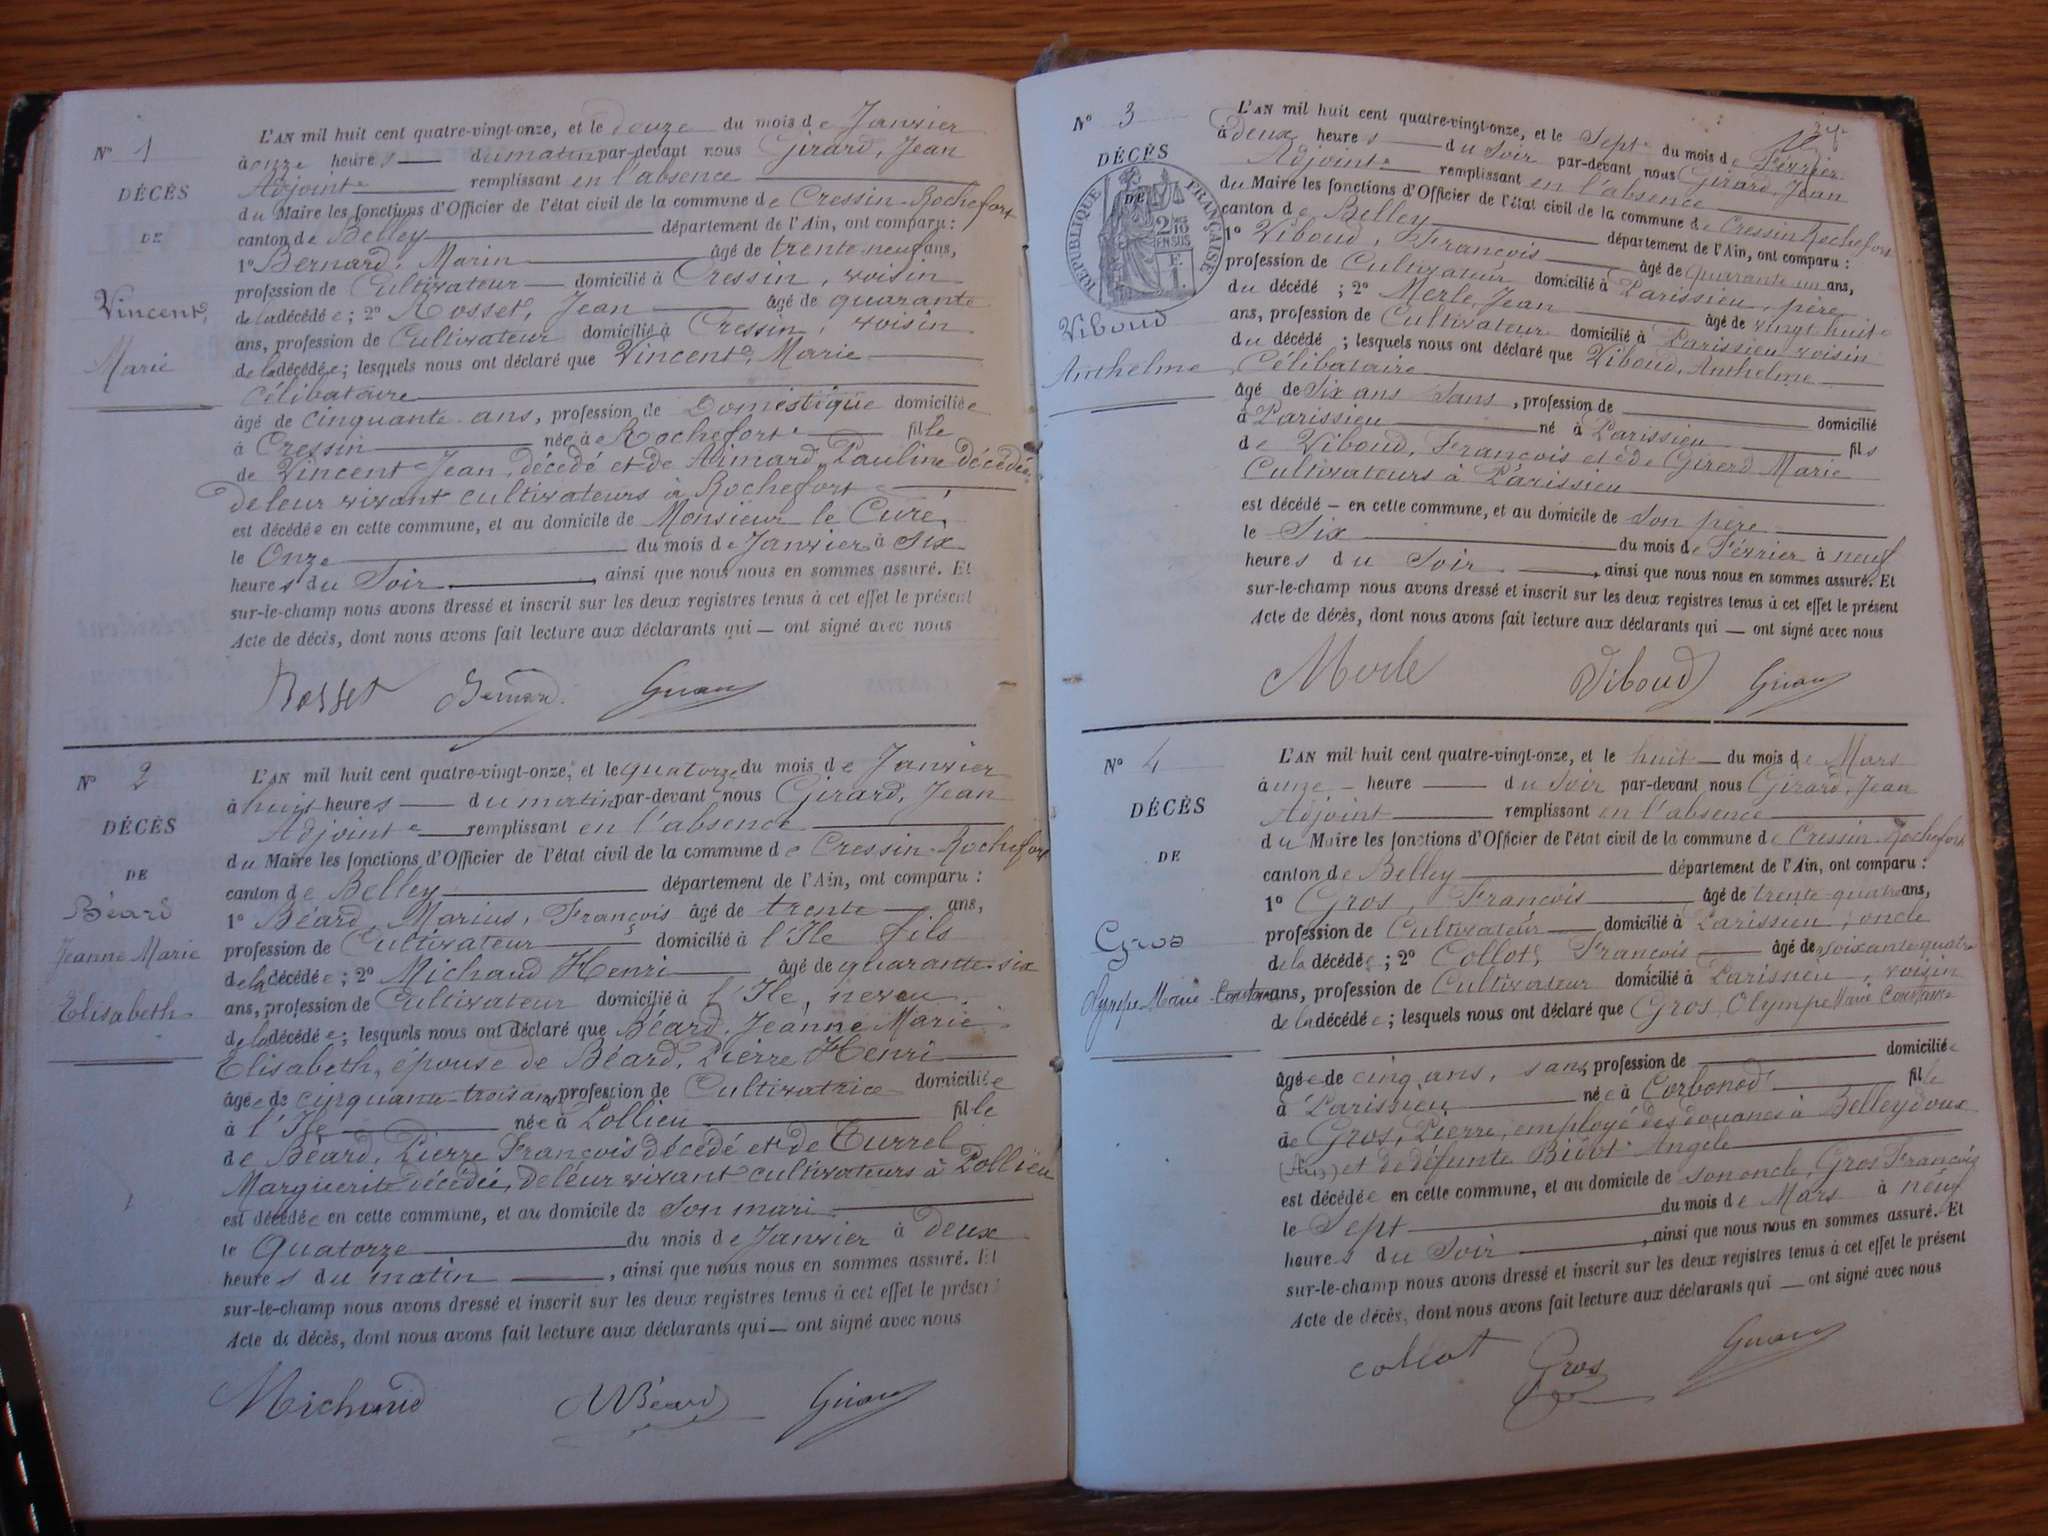 N° 1
DÉCÈS
DE
Vincent,
Marie
L'AN mil huit cent quatre-vingt-onze, et le douze du mois de Janvier
à onze heures du matin par-devant nous Girard, Jean
Adjoint remplissant en l'absence
du Maire les fonctions d'Officier de l'état civil de la commune de Cressin-Rochefort
canton de Belley département de l'Ain, ont comparu :
1° Bernard, Marin âgé de trente-neuf ans,
profession de Cultivateur domicilié à Cressin, voisin
de la décédée ; 2° Rosset, Jean âgé de quarante
ans, profession de Cultivateur domicilié à Cressin, voisin
de la décédée ; lesquels nous ont déclaré que Vincent, Marie
Célibataire
âgé de cinquante ans, profession de Domestique domiciliée
à Cressin née à Rochefort fille
de Vincent Jean, décédé et de Aimard, Pauline décédée
de leur vivant cultivateurs à Rochefort
est décédée en cette commune, et au domicile de Monsieur le Curé,
le Onze du mois de Janvier à six
heures du Soir, ainsi que nous nous en sommes assuré. Et
sur-le-champ nous avons dressé et inscrit sur les deux registres tenus à cet effet le présent
Acte de décès, dont nous avons fait lecture aux déclarants qui — ont signé avec nous
Rosset Bernard Girard
N° 2
DÉCÈS
DE
Béard
Jeanne Marie
Elisabeth
L'AN mil huit cent quatre-vingt-onze, et le quatorze du mois de Janvier
à huit heures du matin par-devant nous Girard, Jean
Adjoint remplissant en l'absence
du Maire les fonctions d'Officier de l'état civil de la commune de Cressin-Rochefort
canton de Belley département de l'Ain, ont comparu :
1° Béard, Marius, François âgé de trente ans,
profession de Cultivateur domicilié à l'Ile fils
de la décédée ; 2° Michaud Henri âgé de quarante-six
ans, profession de Cultivateur domicilié à l'Ile, neveu
de la décédée ; lesquels nous ont déclaré que Béard, Jeanne Marie
Elisabeth, épouse de Béard, Pierre Henri
âgée de cinquante-trois ans, profession de Cultivatrice domiciliée
à l'Ile née à Pollieu fille
de Béard, Pierre François décédé et de Turrel
Marguerite décédée, de leur vivant cultivateurs à Pollieu
est décédée en cette commune, et au domicile de Son mari
le Quatorze du mois de Janvier à deux
heures du matin, ainsi que nous nous en sommes assuré. Et
sur-le-champ nous avons dressé et inscrit sur les deux registres tenus à cet effet le présent
Acte de décès, dont nous avons fait lecture aux déclarants qui — ont signé avec nous
Michaud MBéard Girard
N° 3
DÉCÈS
DE
RÉPUBLIQUE FRANÇAISE
2/10 EN SUS
Viboud
Anthelme
L'AN mil huit cent quatre-vingt-onze, et le Sept du mois de Février
à deux heures du Soir par-devant nous Girard, Jean
Adjoint remplissant en l'absence
du Maire les fonctions d'Officier de l'état civil de la commune de Cressin Rochefort
canton de Belley département de l'Ain, ont comparu :
1° Viboud, François âgé de quarante un ans,
profession de Cultivateur domicilié à Parissieu, père
du décédé ; 2° Merle, Jean âgé de vingt huit
ans, profession de Cultivateur domicilié à Parissieu voisin
du décédé ; lesquels nous ont déclaré que Viboud, Anthelme
Célibataire
âgé de Six ans Sans, profession de domicilié
à Parissieu né à Parissieu fils
de Viboud, François et de Girerd Marie
Cultivateurs à Parissieu
est décédé — en cette commune, et au domicile de Son père
le Six du mois de Février à neuf
heures du Soir, ainsi que nous nous en sommes assuré. Et
sur-le-champ nous avons dressé et inscrit sur les deux registres tenus à cet effet le présent
Acte de décès, dont nous avons fait lecture aux déclarants qui — ont signé avec nous
Merle Viboud Girard
N° 4
DÉCÈS
DE
Gros
Olympe Marie Constance
L'AN mil huit cent quatre-vingt-onze, et le huit du mois de Mars
à une heure du Soir par-devant nous Girard, Jean
Adjoint remplissant en l'absence
du Maire les fonctions d'Officier de l'état civil de la commune de Cressin-Rochefort
canton de Belley département de l'Ain, ont comparu :
1° Gros, François âgé de trente-quatre ans,
profession de Cultivateur domicilié à Parissieu, oncle
de la décédée ; 2° Collot, François âgé de soixante quatre
ans, profession de Cultivateur domicilié à Parissieu, voisin
de la décédée ; lesquels nous ont déclaré que Gros, Olympe Marie Constance
âgée de cinq ans, sans profession de domiciliée
à Parissieu née à Corbonod fille
de Gros, Pierre, employé des douanes à Belleydoux
(Ain) et de défunte Angèle
est décédée en cette commune, et au domicile de son oncle, Gros François
le Sept du mois de Mars à neuf
heures du Soir, ainsi que nous nous en sommes assuré. Et
sur-le-champ nous avons dressé et inscrit sur les deux registres tenus à cet effet le présent
Acte de décès, dont nous avons fait lecture aux déclarants qui — ont signé avec nous
Collot Gros Girard